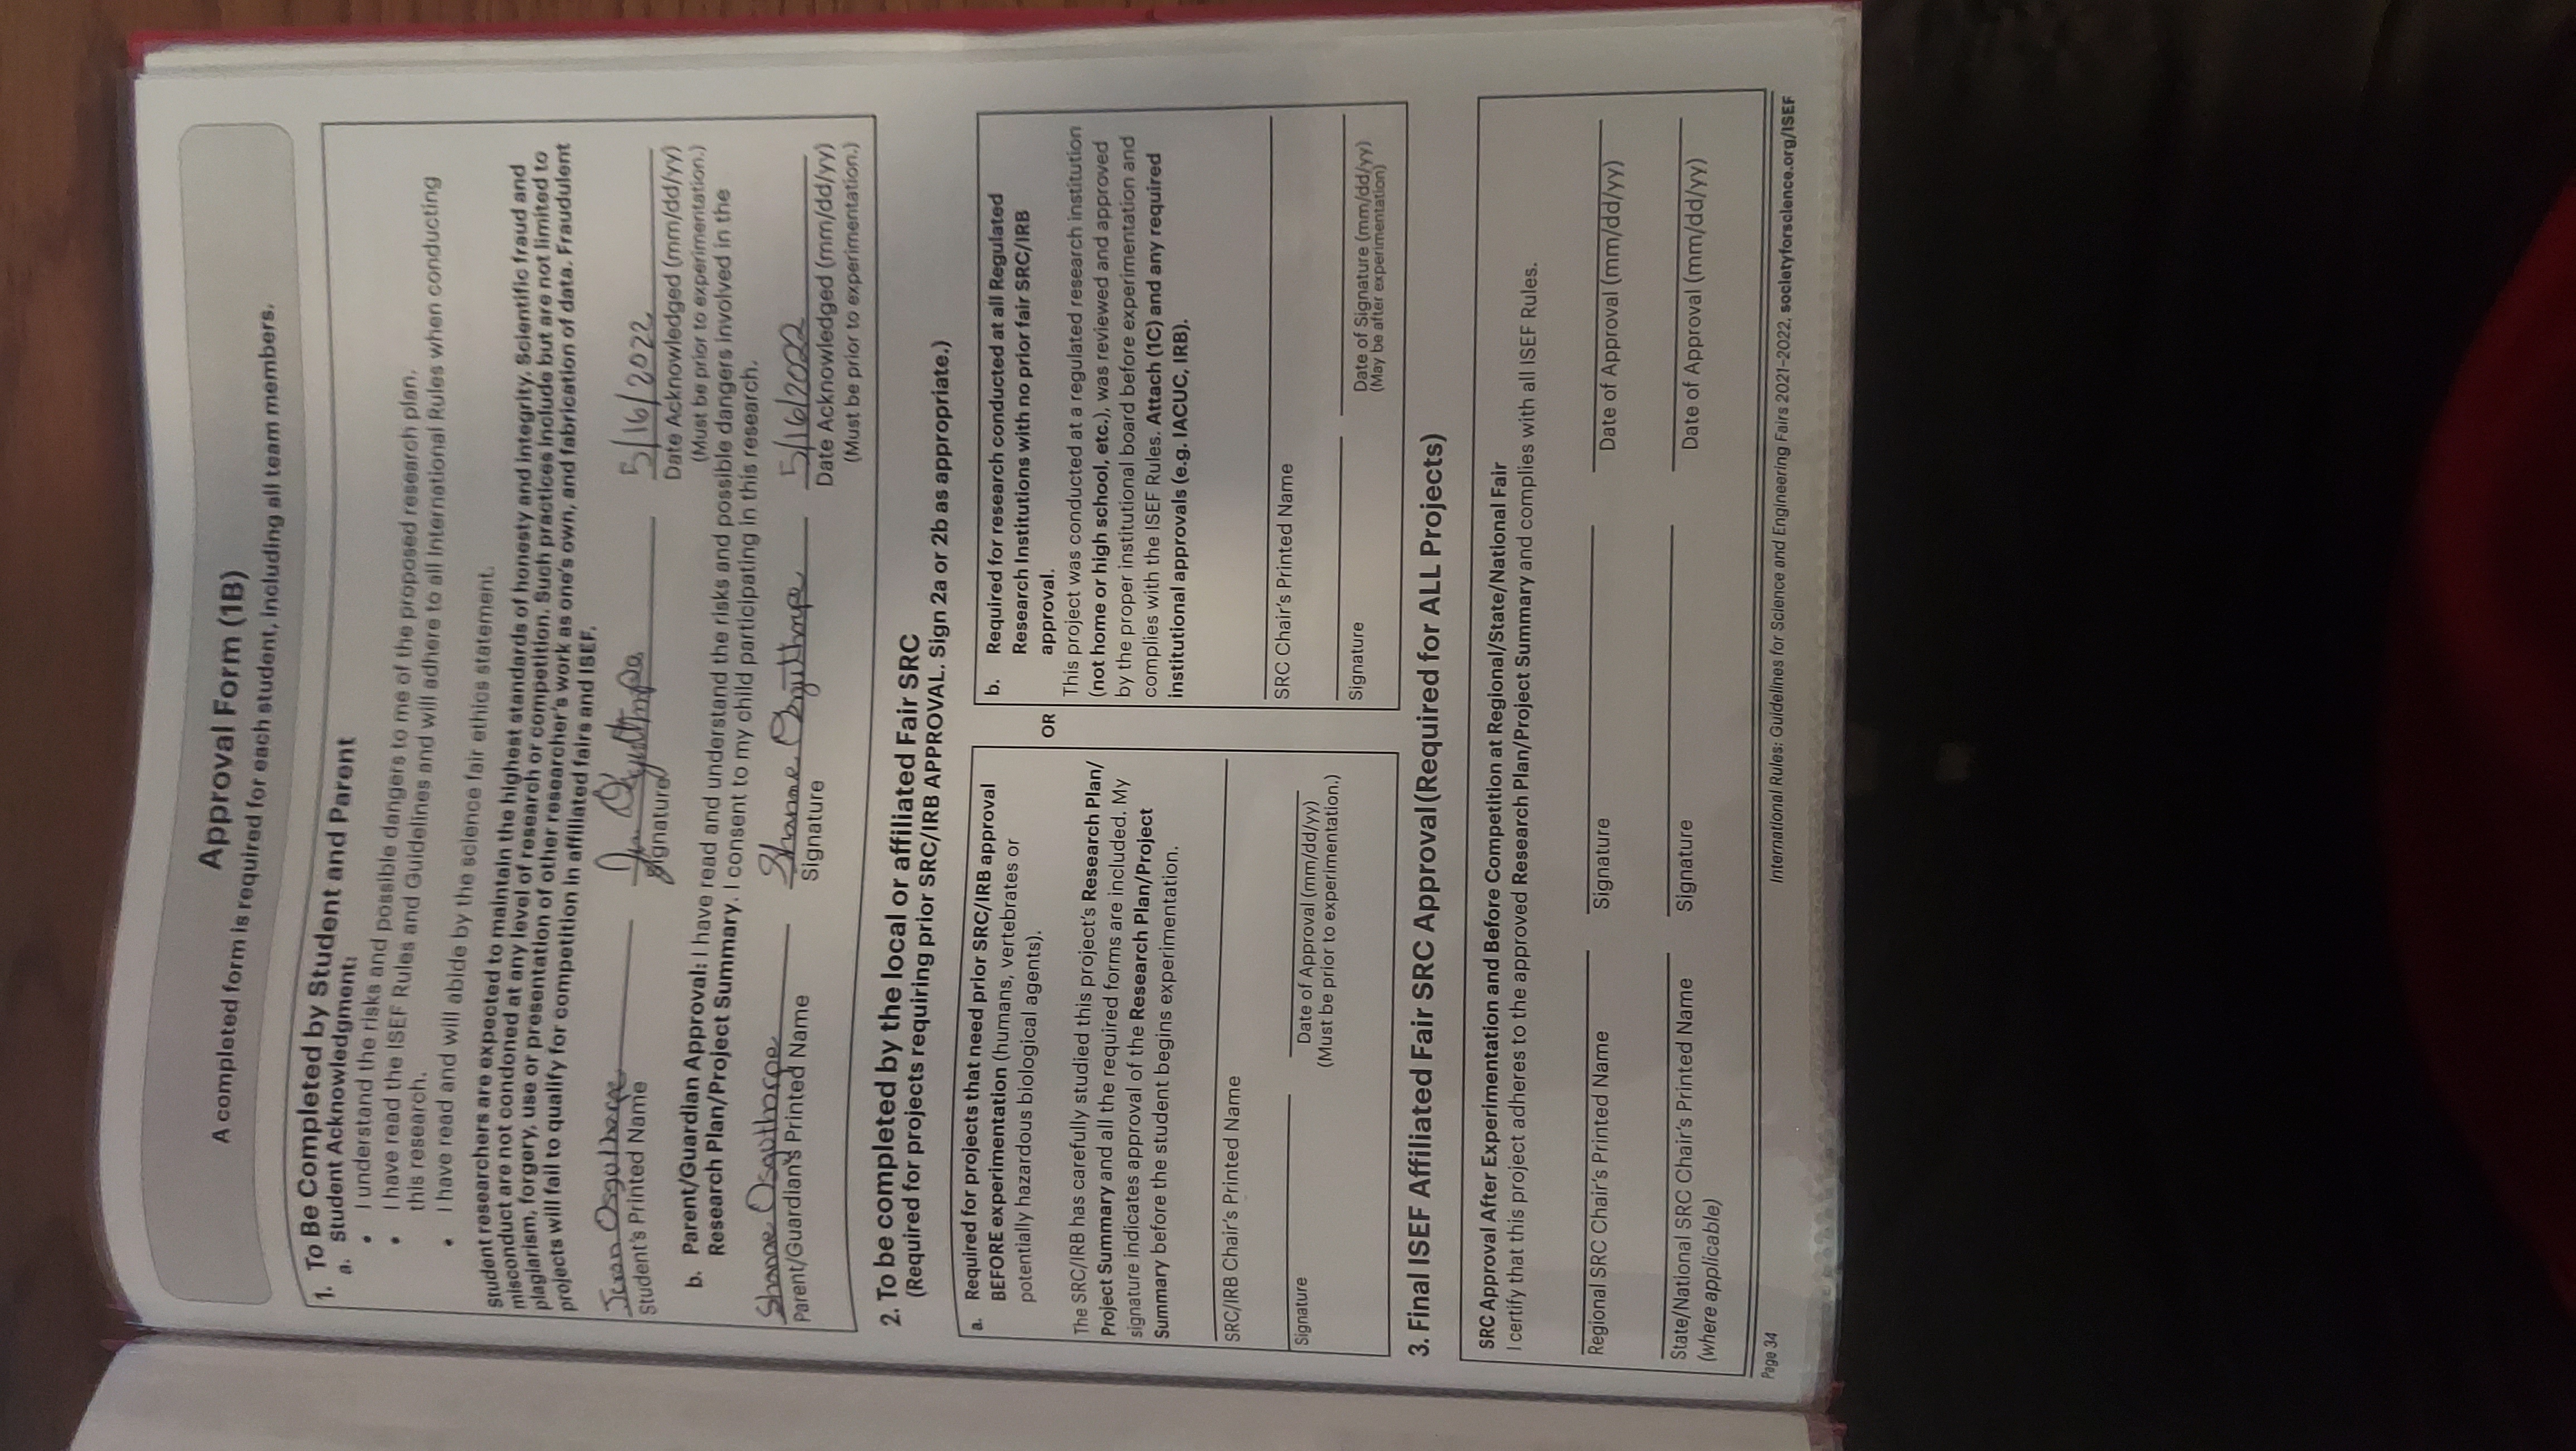 Approval Form (1B)
A completed form is required for each student, including all team members.
1. To Be Completed by Student and Parent
a. Student Acknowledgment:
• I understand the risks and possible dangers to me of the proposed research plan.
• I have read the ISEF Rules and Guidelines and will adhere to all International Rules when conducting
this research.
• I have read and will abide by the science fair ethics statement.
Student researchers are expected to maintain the highest standards of honesty and integrity. Scientific fraud and
misconduct are not condoned at any level of research or competition. Such practices include but are not limited to
plagiarism, forgery, use or presentation of other researcher's work as one's own, and fabrication of data. Fraudulent
projects will fail to qualify for competition in affiliated fairs and ISEF.
Osguthorpe Osguthorpe 5/16/2022
Student's Printed Name Signature Date Acknowledged (mm/dd/yy)
(Must be prior to experimentation.)
b. Parent/Guardian Approval: I have read and understand the risks and possible dangers involved in the
Research Plan/Project Summary. I consent to my child participating in this research.
Shanae Osguthorpe Shanae Osguthorpe 5/16/2022
Parent/Guardian's Printed Name Signature Date Acknowledged (mm/dd/yy)
(Must be prior to experimentation.)
2. To be completed by the local or affiliated Fair SRC
(Required for projects requiring prior SRC/IRB APPROVAL. Sign 2a or 2b as appropriate.)
a. Required for projects that need prior SRC/IRB approval
BEFORE experimentation (humans, vertebrates or
potentially hazardous biological agents).
The SRC/IRB has carefully studied this project's Research Plan/
Project Summary and all the required forms are included. My
signature indicates approval of the Research Plan/Project
Summary before the student begins experimentation.
SRC/IRB Chair's Printed Name
Signature Date of Approval (mm/dd/yy)
(Must be prior to experimentation.)
OR
b. Required for research conducted at all Regulated
Research Institutions with no prior fair SRC/IRB
approval.
This project was conducted at a regulated research institution
(not home or high school, etc.), was reviewed and approved
by the proper institutional board before experimentation and
complies with the ISEF Rules. Attach (1C) and any required
institutional approvals (e.g. IACUC, IRB).
SRC Chair's Printed Name
Signature Date of Signature (mm/dd/yy)
(May be after experimentation)
3. Final ISEF Affiliated Fair SRC Approval (Required for ALL Projects)
SRC Approval After Experimentation and Before Competition at Regional/State/National Fair
I certify that this project adheres to the approved Research Plan/Project Summary and complies with all ISEF Rules.
Regional SRC Chair's Printed Name Signature Date of Approval (mm/dd/yy)
State/National SRC Chair's Printed Name Signature Date of Approval (mm/dd/yy)
(where applicable)
Page 34 International Rules: Guidelines for Science and Engineering Fairs 2021–2022, societyforscience.org/ISEF